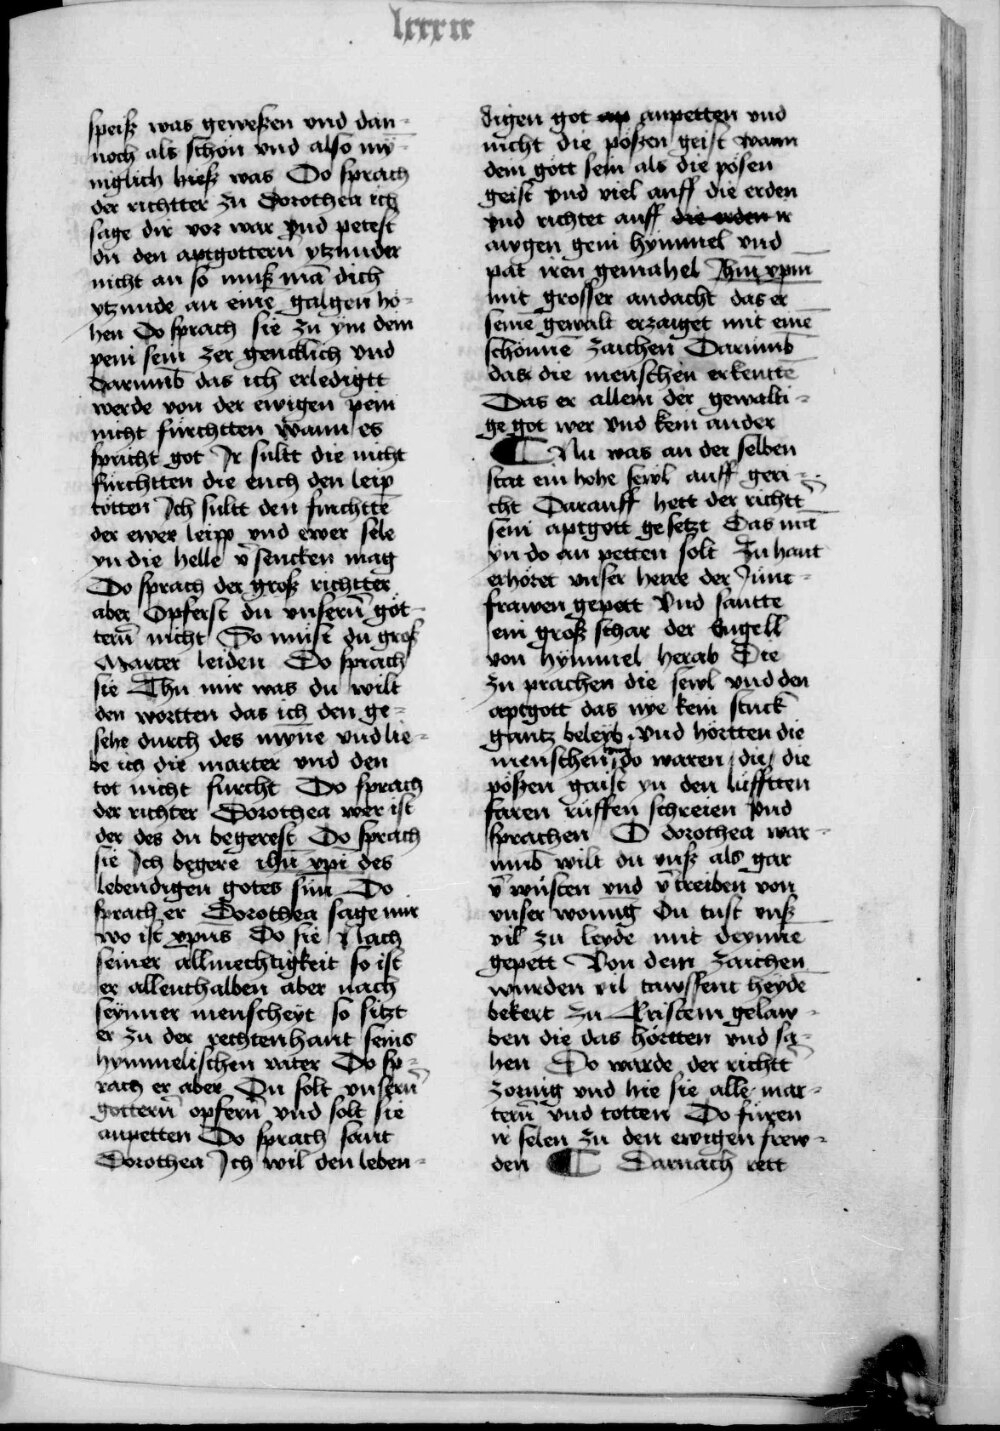 lxxxix
speiß was geweßen vnd dan-
noch als schön vnd also my-
niglich hieß was Do sprach
der richtter zu Dorothea ich
sage dir vor war vnd petest
du den aptgottern̄ ytzunder
nicht an so muß mā dich
ytzunde an eine galgen ho-
hen Do sprach sie zu ym dein
pein sein zer gencklich vnd
Darumb das ich erledigtt
werde von der ewigen pein
nicht fürchtten wann es
spricht got Ir sultt die nicht
fürchtten die euch den leip
tötten Ich sultt den furchttē
der ewer leipp vnd ewer sele
yn die helle v̄sencken mag
Do sprach der groß richtter
aber Opferst du vnsern̄ göt-
tern̄ nicht So must du groß
Marter leiden Do sprach
sie Thu mir was du wilt
den wortten das ich den ge-
sehe durch des mÿne vnd lie-
be ich die marter vnd den
tot nicht furcht Do sprach
der richter Dorothea wer ist
der des du begerest Do sprach
sie Ich begere ihū xpi des
lebendigen gotes sun Do
sprach er Dorothea sage mir
wo ist xpūs Do sie Nach
seiner allmechtigkeit so ist
er allenthalben aber nach
seynner menscheyt so sitzt
er zu der rechtenhant seins
hymmelischen vater Do sp-
rach er aber Du solt vnsern̄
gottern̄ opfern̄ vnd solt sie
anpetten Do sprach sant
Dorothea Ich wil den leben-
digen got an anpetten vnd
nicht die pößen geist wann
dein gött sein als die pösen
geist vnd viel auff die erden
vnd richtet auff die erden ir
awgen gein hymmel vnd
pat iren gemahel Ihm̄ xpm̄
mit grosser andacht das er
seinē gewalt erzaiget mit einē
schönnē zaichen Darumb
das die menschen erkenttē
Das er allein der gewalti-
ge got wer vnd kein ander
¶ Nu was an der selben
stat ein hohe sewl auff geri-
cht Darauff hett der richtt̄
sein aptgott gesetzt Das mā
yn do an petten solt Zu hant
erhöret vnser herre der Junc-
frawen gepett Vnd santte
ein groß schar der Engell
von hymmel herab Die
zu prachen die sewl vnd den
aptgott das nye kein stuck
gantz beleyb. Vnd hörtten die
menschen do waren die die
pößen gaist yn den lüfftten
faren rüffen schreien vnd
sprachen O dorothea war-
umb wilt du vnß als gar
v̄wüsten vnd v̄treiben von
vnser wonūg Du tust vnß
vil zu leyde mit deynne
gepett Von dem zaichen
wurden vil tawssent heydē
bekert zu Kristem gelaw-
ben die das hörtten vnd sa-
hen Do warde der richtt̄
zornig vnd hie sie alle mar-
tern̄ vnd totten Do füren
ir selen zu den ewigen frew-
den ¶ Darnach rett